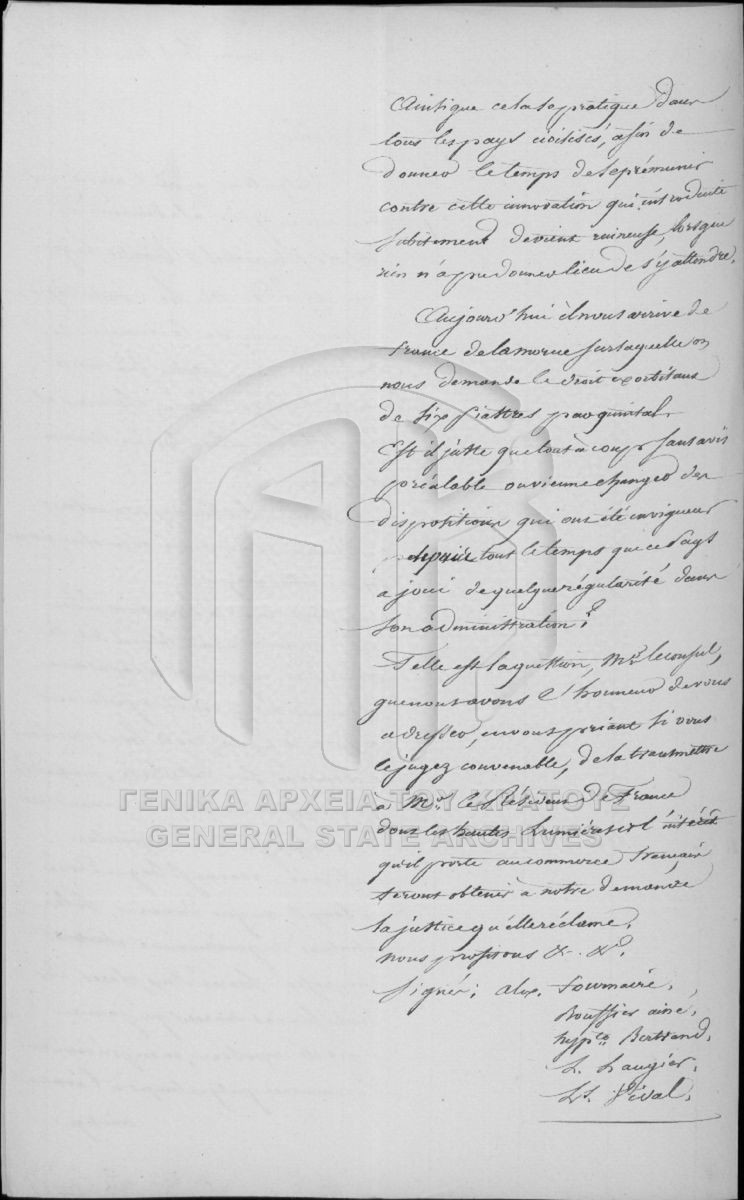 Ainsi que cela se pratique dans
tous les pays civilisés, afin de
donner le temps de se prémunir
contre cette innovation qui, introduite
subitement devient ruineuse, lorsque
rien n'a pu donner lieu de s'y attendre.
Aujourd'hui il nous arrive de
france de la morue sur laquelle on
nous demande le droit exorbitant
de six piastres par quintal.
Est il juste que tout à coup sans avis
préalable on vienne changer des
dispositions qui ont été en vigueur
depuis tout le temps que ce Pays
a joui de quelque régularité dans
son administration?
Telle est la question, Mr. le consul,
que nous avons l'honneur de vous
adresser, en vous priant si vous
le jugez convenable, de la transmettre
à Mr. le Résident de France
dont les hautes lumières et l'intérêt
qu'il porte au commerce français
feront obtenir à notre demande
la justice qu'elle réclame.
nous profitons &. &a.
Signés: alex.
Bouffier ainé,
hyp.te Bertrand,
L. Laugier,
Ls. Vival.
ΓΕΝΙΚΑ ΑΡΧΕΙΑ ΤΟΥ ΚΡΑΤΟΥΣ
GENERAL STATE ARCHIVES